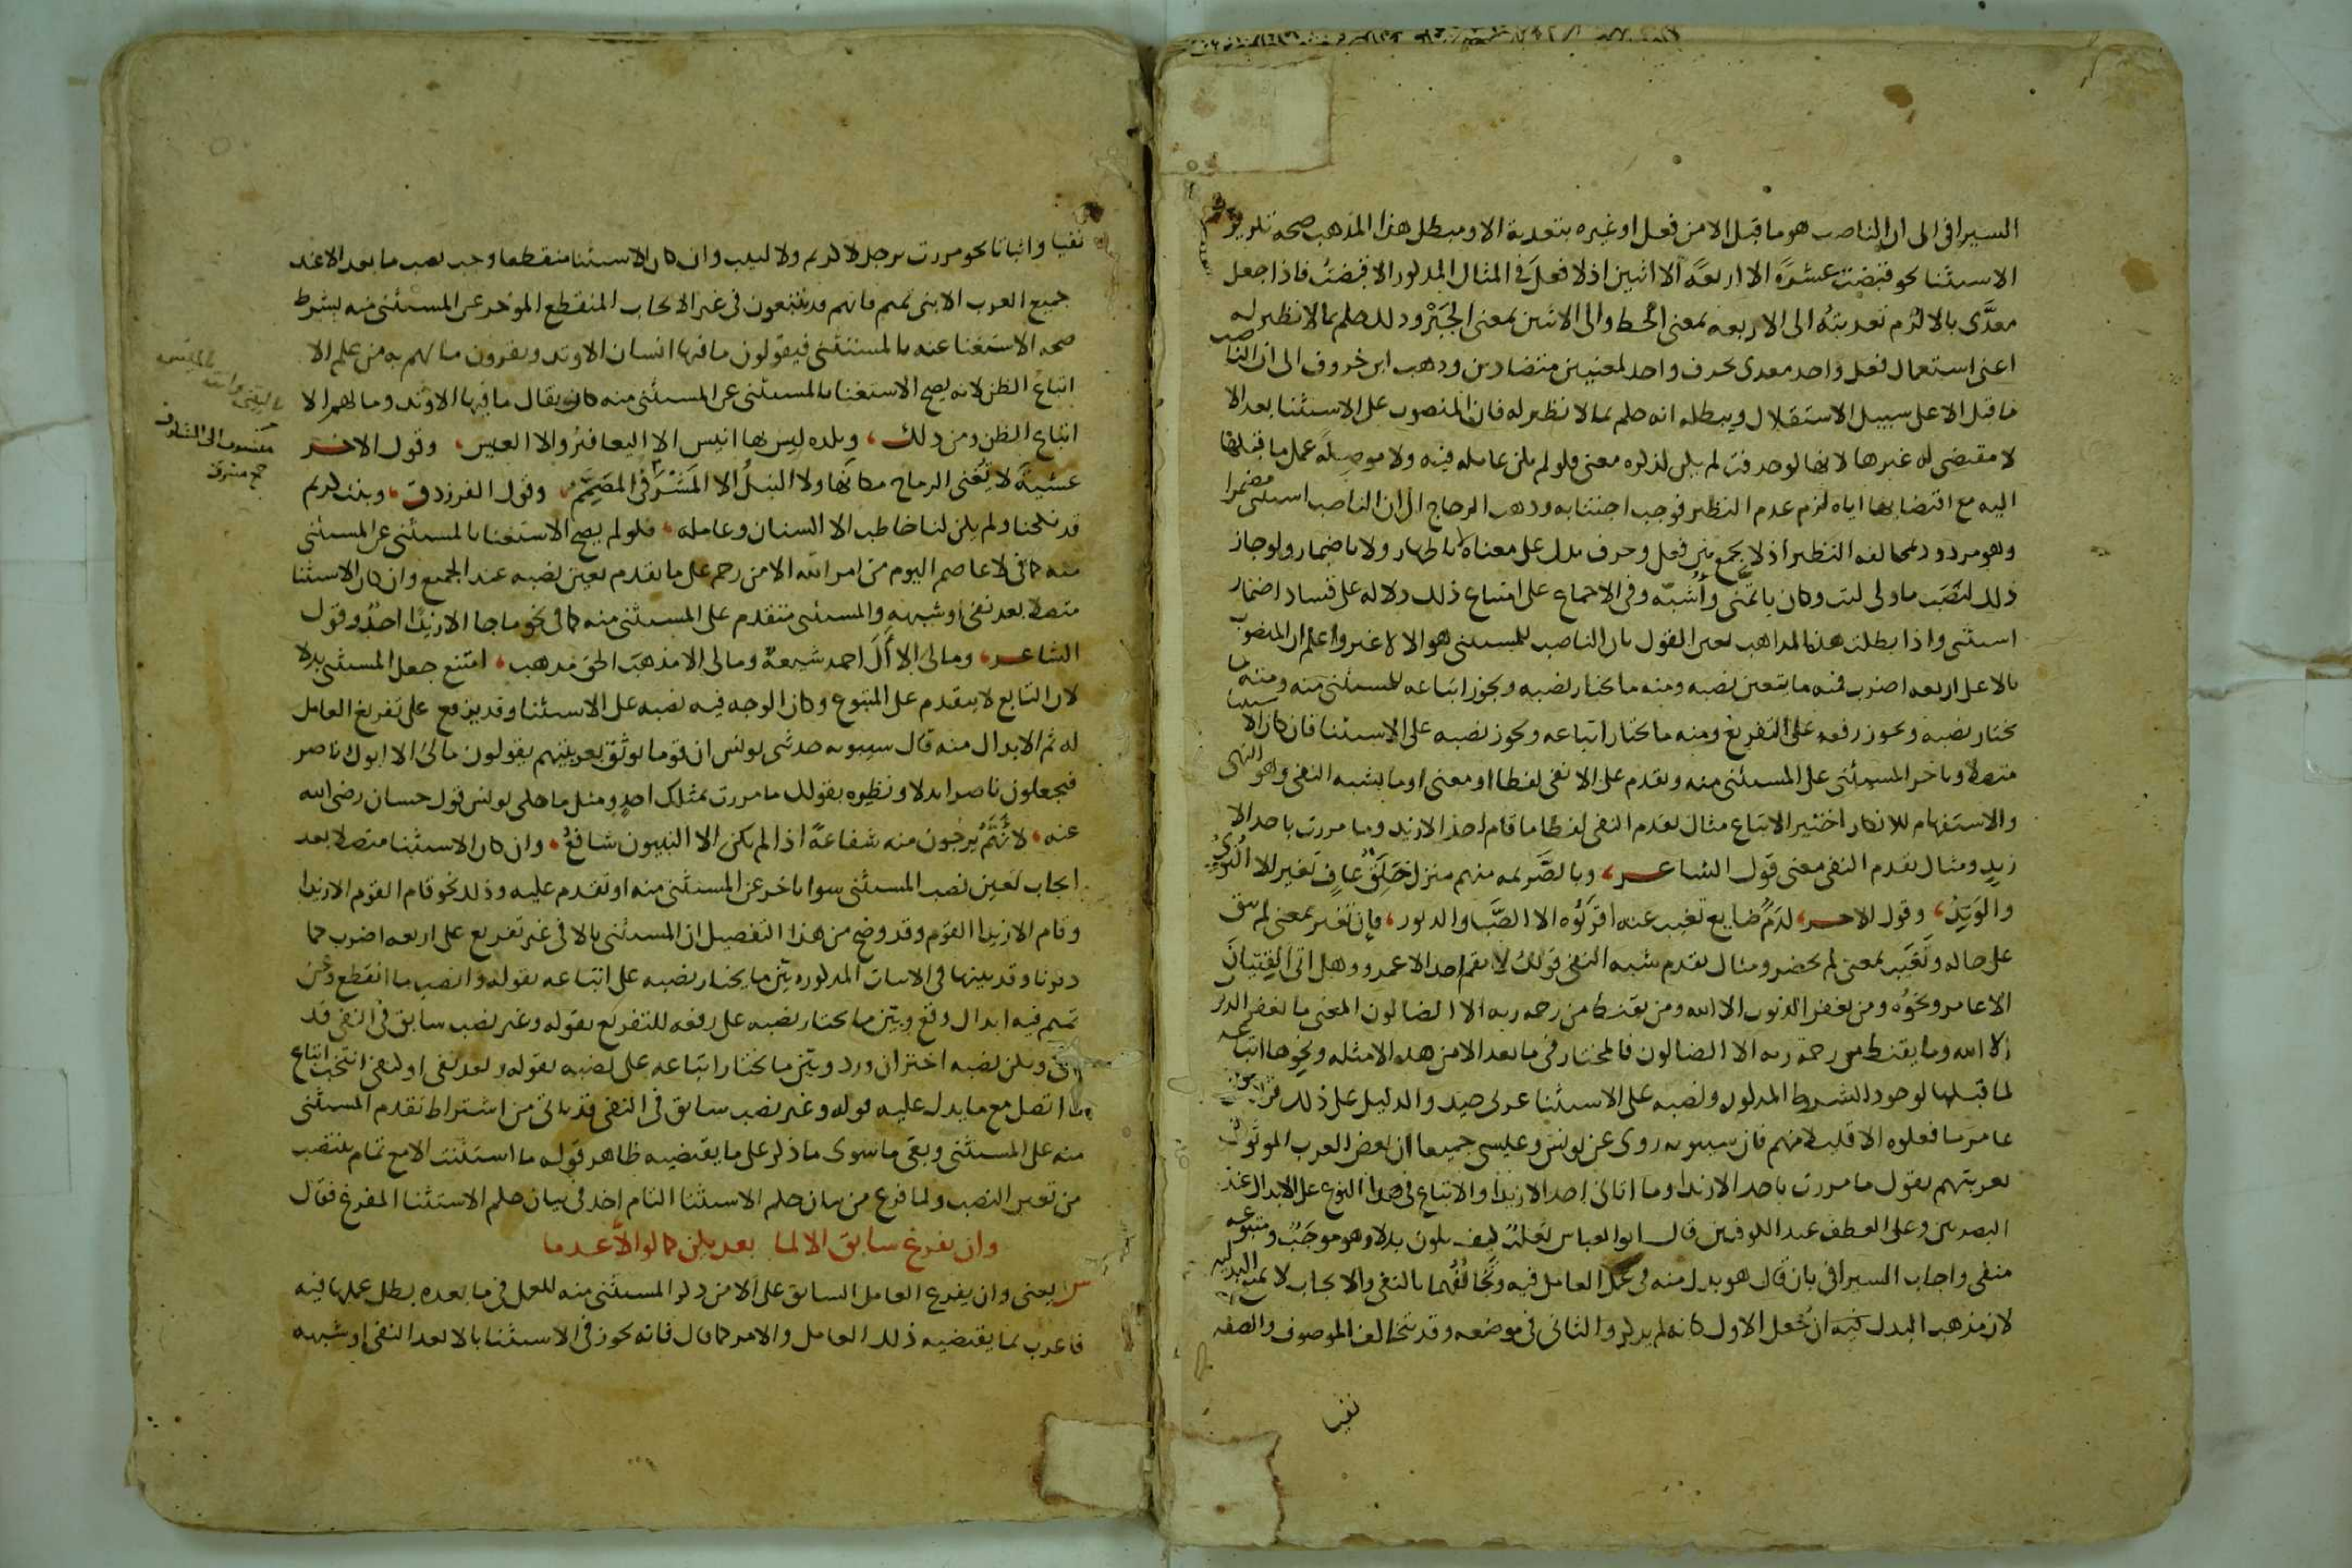 السيرافي الى ان الناصب هو ما قبل الا من فعل او غيره بتعدية الا ومبطل هذا المذهب صحه تكرير
الاستثنا نحو قبضت عشرة الا اربعة الا اثنين اذ لا فعل في المثال المذكور الا قبضت فاذا جعل
معدّى بالا لزم تعديته الى الاربعه بمعنى الحط والى الاثنين بمعنى الجبر وذلك حكم بما لا نظير له
اعنى استعمال فعل واحد معدى بحرف واحد لمعنيين متضادين وذهب ابن خروف الى ان الناصب
ما قبل الا على سبيل الاستقلال ويبطله انه حكم بما لا نظير له فان المنصوب على الاستثنا بعد الا
لا مقتضى له غيرها لانها لو حذفت لم يكن لذكره معنى فلو لم تكن عاملة فيه ولا موصلة عمل ما قبلها
اليه مع اقتضايها اياه لزم عدم النظير فوجب اجتنابه وذهب الزجاج الى ان الناصب استثنى مضمرا
وهو مردود بمخالفة النظير اذ لا يجمع بين فعل وحرف يدل على معناه لا باظهار ولا باضمار ولو جاز
ذلك لنصب ما ولى ليت وكان باتمنى واشبه وفي الاجماع على امتناع ذلك دلالة على فساد اضمار
استثنى واذا بطلت هذه المذاهب تعين القول بان الناصب للمستثنى هو الا لا غير واعلم ان المنصوب
بالا على اربعه اضرب فمنه ما يتعين نصبه ومنه ما يختار نصبه ويجوز اتباعه للمستثنى منه ومنه ما
يختار نصبه ويجوز رفعه على التفريغ ومنه ما يختار اتباعه ويجوز نصبه على الاستثنا فان كان الاستثنا
متصلا وتاخر المستثنى على المستثنى منه وتقدم على الا نفى لفظا او معنى او ما يشبه النفى وهو النهى
والاستفهام للانكار اختير الاتباع مثال تقدم النفى لفظا ما قام احد الا زيد وما مررت باحد الا
زيد ومثال تقدم النفى معنى قول الشاعر، وبالصريمه منهم منزل خلق عاف تغير الا النوى
والوتد، وقول الاخر، لدم ضايع تغيب عنه اقربوه الا الصبا والدبور، فان تغير بمعنى لم يبق
على حاله وتغيب بمعنى لم يحضر ومثال تقدم شبه النفى قولك لا يقم احد الا عمرو وهل اتى الفتيان
الا عامر ونحوه ومن يغفر الذنوب الا الله ومن يقنط من رحمه ربه الا الضالون المعنى ما يغفر الذنوب
الا الله وما يقنط من رحمة ربه الا الضالون فالمختار في ما بعد الا من هذه الامثله ونحوها اتباعه
لما قبلها لوجود الشرط المذكور ونصبه على الاستثنا عربى جيد والدليل على ذلك قراة ابن
عامر ما فعلوه الا قليلا منهم فان سيبويه روى عن يونس وعيسى جميعا ان بعض العرب الموثوق
بعربيتهم يقول ما مررت باحد الا زيدا وما اتانى احد الا زيدا والاتباع في هذا النوع على الابدال عند
البصريين وعلى العطف عند الكوفيين قال ابو العباس ثعلب كيف يكون بدلا وهو موجب ومتبوعه
منفى واجاب السيرافى بان قال هو بدل منه في عمل العامل فيه وتخالفهما بالنفى والايجاب لا يمنع البدليه
لان مذهب البدل فيه ان تجعل الاول كانه لم يذكر والثانى في موضعه وقد تتخالف الموصوف والصفه
نفيا
نفيا واثباتا نحو مررت برجل لا كريم ولا لبيب وان كان الاستثنا منقطعا وجب نصب ما بعد الا عند
جميع العرب الا بنى تميم فانهم قد يتبعون في غير الايجاب المنقطع الموخر عن المستثنى منه بشرط
صحه الاستغنا عنه بالمستثنى فيقولون ما فيها انسان الا وتد ويقرون ما لهم به من علم الا
اتباع الظن لانه يصح الاستغنا بالمستثنى عن المستثنى منه كان يقال ما فيها الا وتد وما لهم الا
اتباع الظن ومن ذلك، وبلده ليس بها انيس الا اليعافير والا العيس، وقول الاخر
عشية لا تغنى الرماح مكانها ولا النبل الا المشرفى المصمم، وقول الفرزدق، وبنت كريم
قد نكحنا ولم يكن لنا خاطب الا السنان وعامله، فلو لم يصح الاستغنا بالمستثنى عن المستثنى
منه كما في لا عاصم اليوم من امر الله الا من رحم على ما تقدم تعين نصبه عند الجميع وان كان الاستثنا
متصلا بعد نفى او شبهه والمستثنى متقدم على المستثنى منه كما في نحو ما جا الا زيدا احد وقول
الشاعر، وما لى الا آل احمد شيعة وما لى الا مذهب الحق مذهب، امتنع جعل المستثنى بدلا
لان التابع لا يتقدم على المتبوع وكان الوجه فيه نصبه على الاستثنا وقد يرفع على تفريغ العامل
له ثم الابدال منه قال سيبويه حدثنى يونس ان قوما يوثق بعربيتهم يقولون مالى الا ابوك ناصر
فيجعلون ناصرا بدلا ونظيره بقولك ما مررت بمثلك احد ومثل ما حكى يونس قول حسان رضى الله
عنه، لانهم يرجون منه شفاعة اذا لم يكن الا النبيون شافع، وان كان الاستثنا متصلا بعد
ايجاب تعين نصب المستثنى سوا تاخر عن المستثنى منه او تقدم عليه وذلك نحو قام القوم الا زيدا
وقام الا زيدا القوم وقد وضح من هذا التفصيل ان المستثنى بالا في غير تفريع على اربعه اضرب كما
ذكرنا وقد بينها في الابيات المذكوره بين ما يختار نصبه على اتباعه بقوله وانصب ما انقطع وعن
تميم فيه ابدال وقع وبين ما يختار نصبه على رفعه للتفريع بقوله وغير نصب سابق في النفى قد
ياتى ولكن نصبه اختر ان ورد وبين ما يختار اتباعه على نصبه بقوله وبعد نفى او كنفى انتخب اتباع
ما اتصل مع ما يدل عليه قوله وغير نصب سابق في النفى قد ياتى من اشتراط تقدم المستثنى
منه على المستثنى وبقى ما سوى ما ذكر على ما يقتضيه ظاهر قوله ما استثنت الا مع تمام ينتصب
من تعين النصب ولما فرغ من بيان حكم الاستثنا التام اخذ في بيان حكم الاستثنا المفرغ فقال
وان يفرغ سابق الا لما بعد يكن كما لو الا عدما
ش يعنى وان يفرغ العامل السابق على الا من ذكر المستثنى منه للعمل في ما بعده بطل عملها فيه
فاعرب بما يقتضيه ذلك العامل والامر كما قال فانه يجوز في الاستثنا بالا بعد النفى او شبهه
منسوب الى المشارف